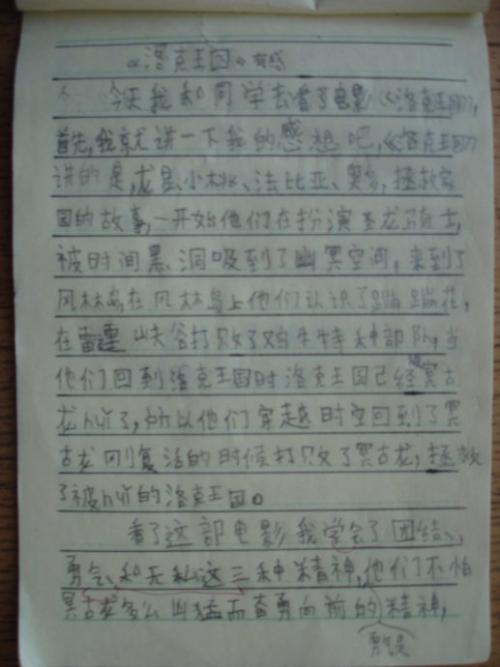 《洛克王国》有感
今天我和同学去看了电影《洛克王国》,
首先,我就讲一下我的感想吧,《洛克王国》
讲的是,龙星、小桃、法比亚、奥,拯救家
园的故事,一开始他们在扮演圣龙骑士,
被时间黑洞吸到了幽冥空间,来到了
风林岛在风林岛上他们认识了蹦蹦花,
在雷霆峡谷打败了鸡牛特种部队,当
他们回到洛克王国时洛克王国已经被冥古
龙huǐ了,所以他们穿越时空回到了冥
古龙刚复活的时候打败了冥古龙,拯救
了被huǐ的洛克王国。
看了这部电影我学会了团结、
勇气、和无私这三种精神,他们不怕
冥古龙多么凶猛而奋勇向前的精神,